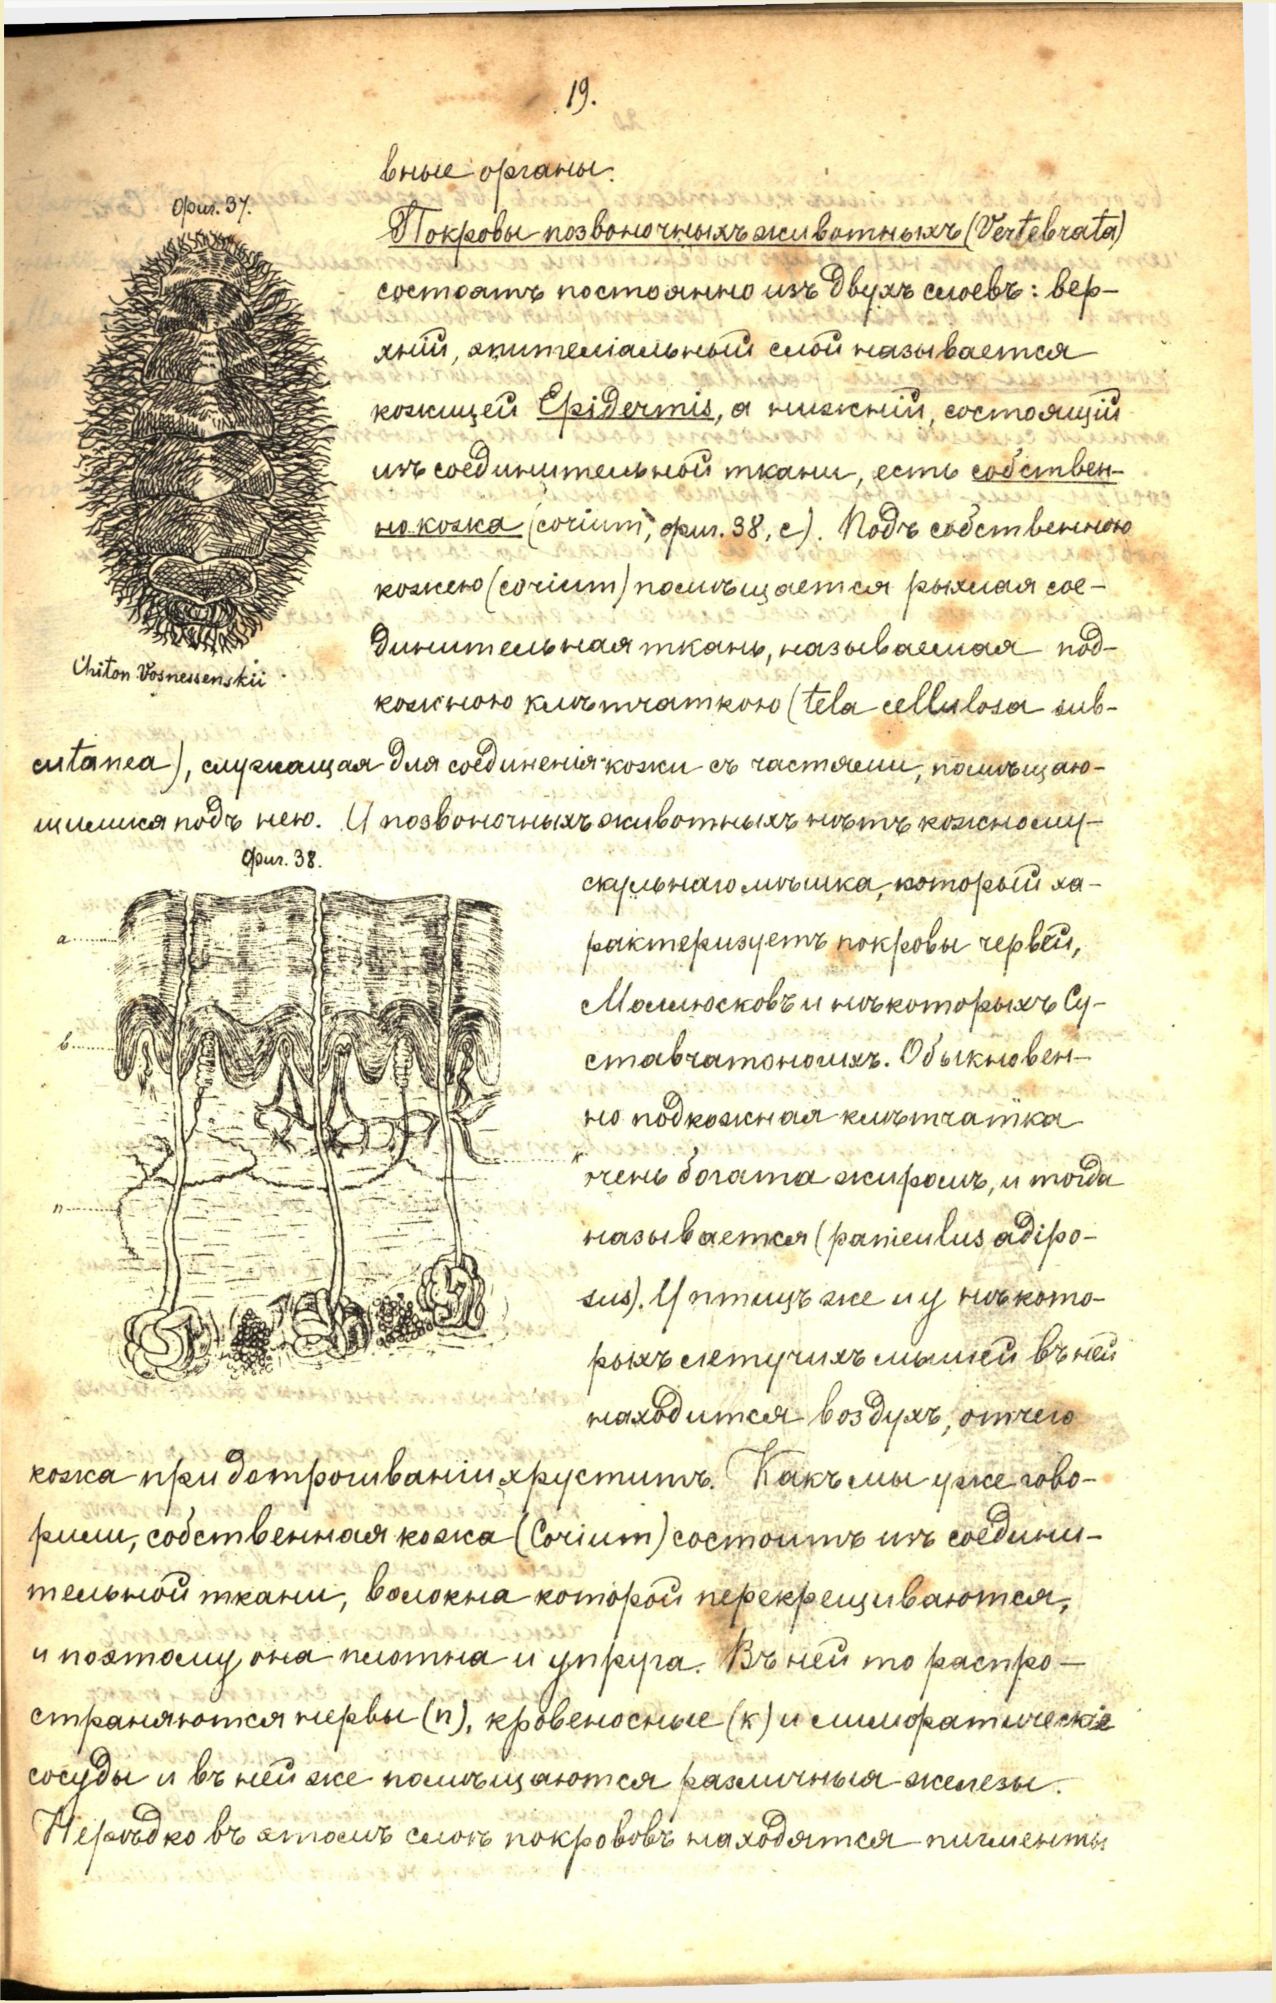 19.
вные органы.
Фиг. 37.
Покровы позвоночныхъ животныхъ (Vertebrata)
состоятъ постоянно изъ двухъ слоевъ: вер-
хній, эпителіальный слой называется
кожицей Epidermis, а нижній, состоящій
изъ соединительной ткани, есть собствен-
но кожа (corium, фиг. 38, c). Подъ собственною
кожею (corium) помѣщается рыхлая сое-
динительная ткань, называемая под-
Chiton Vosnessenskii
кожною клѣтчаткою (tela cellulosa sub-
cutanea), служащая для соединенія кожи съ частями, помѣщаю-
щимися подъ нею. У позвоночныхъ животныхъ нѣтъ кожному-
Фиг. 38.
скульнаго мѣшка, который ха-
рактеризуетъ покровы червей,
a
Моллюсковъ и нѣкоторыхъ Су-
в
ставчатоногихъ. Обыкновен-
но подкожная клѣтчатка
к
очень богата жиромъ, и тогда
n
называется (paniculus adipo-
sus). У птицъ же и у нѣкото-
рыхъ летучихъ мышей въ ней
находится воздухъ, отчего
кожа при дотрогиваніи хруститъ. Какъ мы уже гово-
рили, собственная кожа (Corium) состоитъ изъ соедини-
тельной ткани, волокна которой перекрещиваются,
и поэтому она плотна и упруга. Въ ней то распро-
страняются нервы (n), кровеносные (к) и лимфатическіе
сосуды и въ ней же помѣщаются различныя железы.
Нерѣдко въ этомъ слоѣ покрововъ находятся пигменты